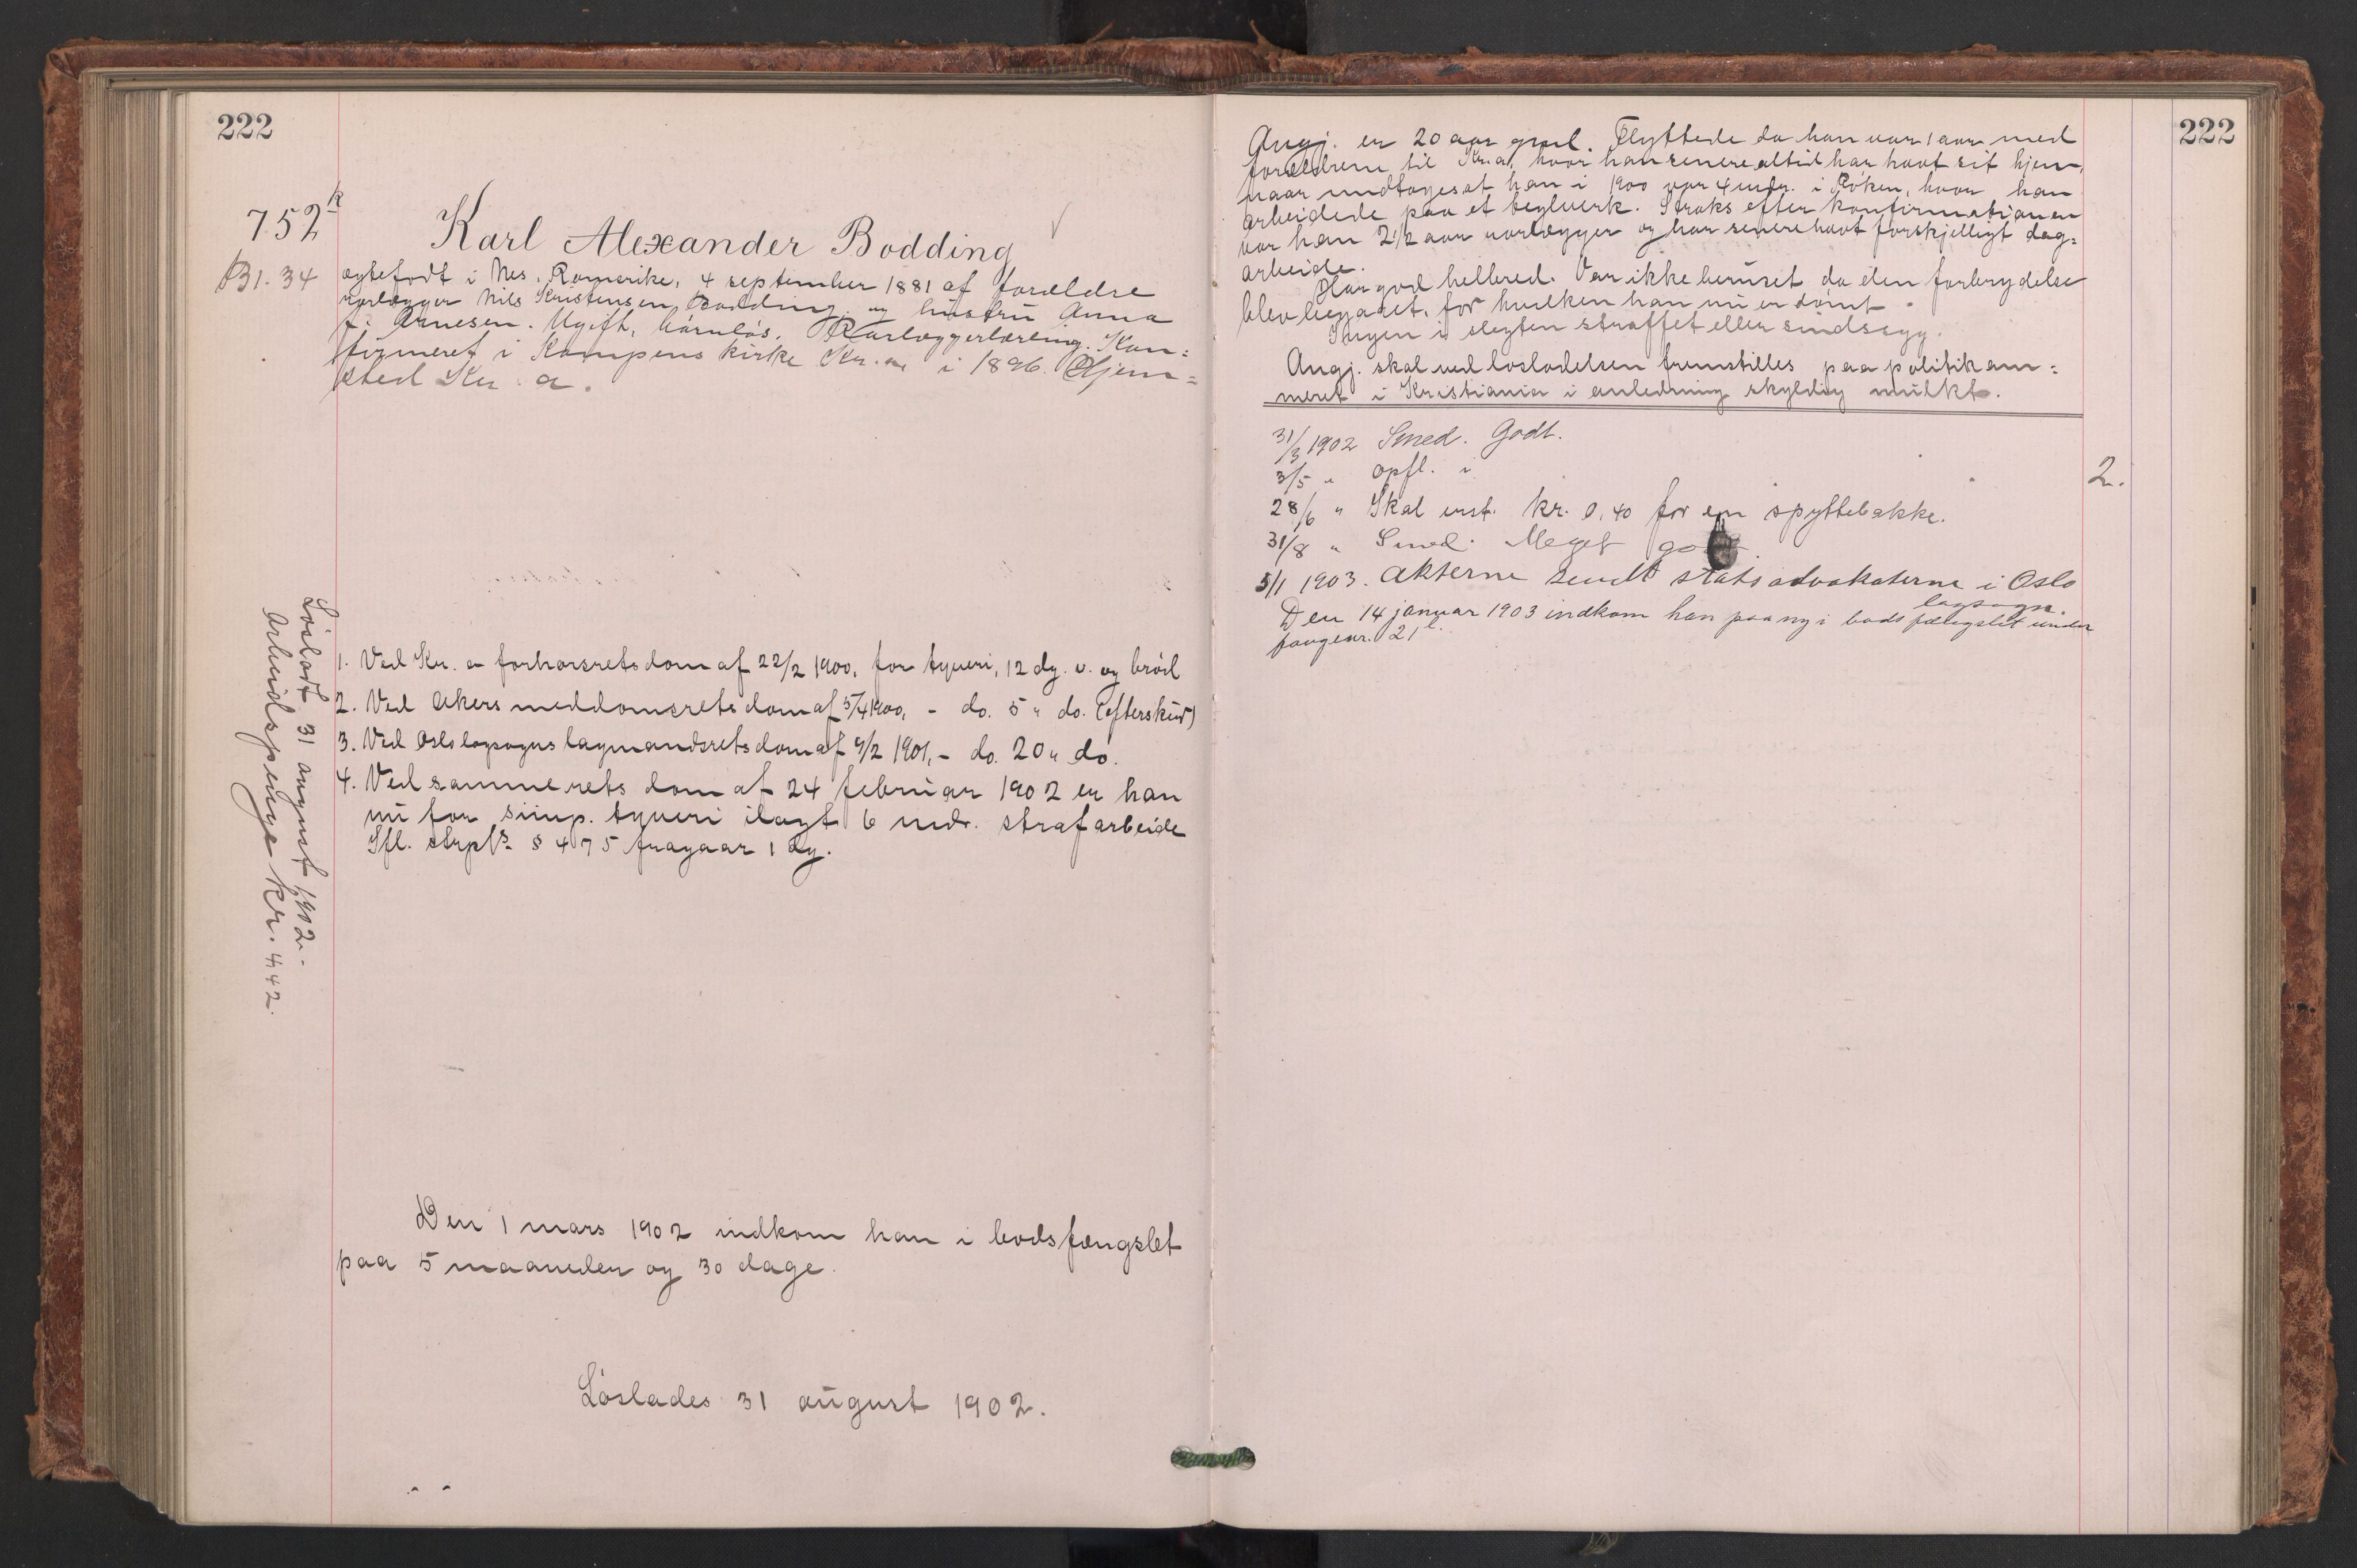 222
752 k
B31. 34
Karl Alexander Bodding
ægtefødt i Nes, Romerike, 4 september 1881 af forældre
rørlægger Nils Kristensen Bodding og hustru Anna
f. Arnesen. Ugift, barnløs. Rørlæggerlærling. Kon=
firmeret i Kampens kirke Kr.a i 1896. Hjem=
sted Kr.a.
1. Ved Kr.a forhørsrets dom af 22/2 1900, for tyveri, 12 dg. v. og brød
2. Ved Akers meddomsrets dom af 5/4 1900, - do. 5 " do. (efterskud)
3. Ved Oslo lagsogns lagmandsrets dom af 9/2 1901, - do. 20 " do.
4. Ved samme rets dom af 24 februar 1902 er han
nu for simp. tyveri ilagt 6 mdr. strafarbeide
Ifl. strpl's § 475 fragaar 1 dg.
Løsladt 31 august 1902.-
Arbeidspenge kr. 4,42.
Den 1 mars 1902 indkom han i bodsfængslet
paa 5 maaneder og 30 dage.
Løslades 31 august 1902.
222
Angj. er 20 aar gml. Flyttede da han var 1 aar med
forældrene til Kr.a, hvor han senere altid har havt sit hjem,
naar undtages at han i 1900 var 4 mdr. i Røken, hvor han
arbeidede paa et teglverk. Straks efter konfirmationen
var han 2 1/2 aar rørlægger og har senere havt forskjelligt dag=
arbeide.
Har god helbred. Var ikke beruset da den forbrydelse
blev begaaet, for hvilken han nu er dømt.
Ingen i slegten straffet eller sindssyg.
Angj. skal ved løsladelsen fremstilles paa politikam=
meret i Kristiania i anledning skyldig mulkt.
31/3 1902 Smed. Godt.
3/5 " opfl. i 2.
28/6 " Skal erst. kr. 0,40 for en spyttebakke.
31/8 " Smed. Meget godt.
5/1 1903. Akterne sendt statsadvokaterne i Oslo
lagsogn.
Den 14 januar 1903 indkom han paa ny i bodsfængslet under
fangenr. 21